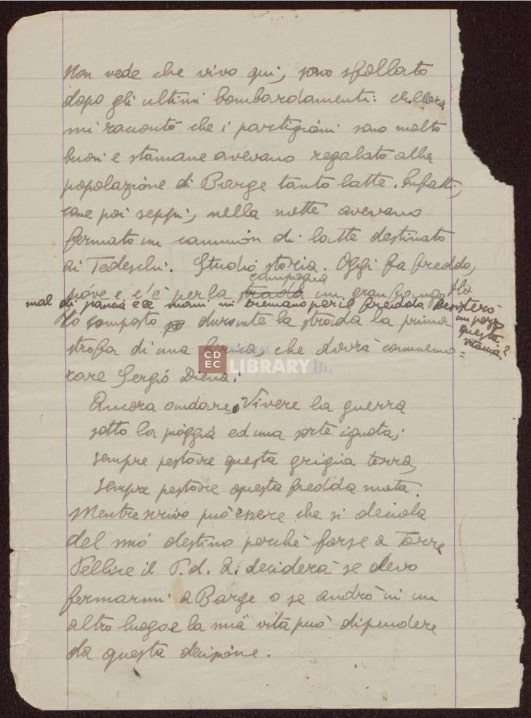 Non vede che vivo qui, sono sfollato
dopo gli ultimi bombardamenti. Allora
mi raccontò che i partigiani sono molto
buoni e stamane avevano regalato alla
popolazione di Barge tanto latte. Infatti,
come poi seppi, nella notte avevano
fermato un camion di latte destinato
ai Tedeschi. Studio storia. Oggi fa freddo,
campagna
piove e c'è per la strada un gran fango. Ho
mal di pancia e le mani mi tremano per il freddo. Resisterò
un pezzo
questa
vitaccia?
Ho composto durante la strada la prima
strofa di una lirica, che dovrà commemo=
rare Sergio Diena:
Ancora andare. Vivere la guerra
sotto la pioggia ed una sorte ignota;
sempre pestare questa grigia terra,
sempre pestare questa fredda mota.
Mentre scrivo può essere che si decida
del mio destino perché forse a Torre
Pellice il P.d.A. deciderà se devo
fermarmi a Barge o se andrò in un
altro luogo e la mia vita può dipendere
da questa decisione.
CD
EC
LIBRARY